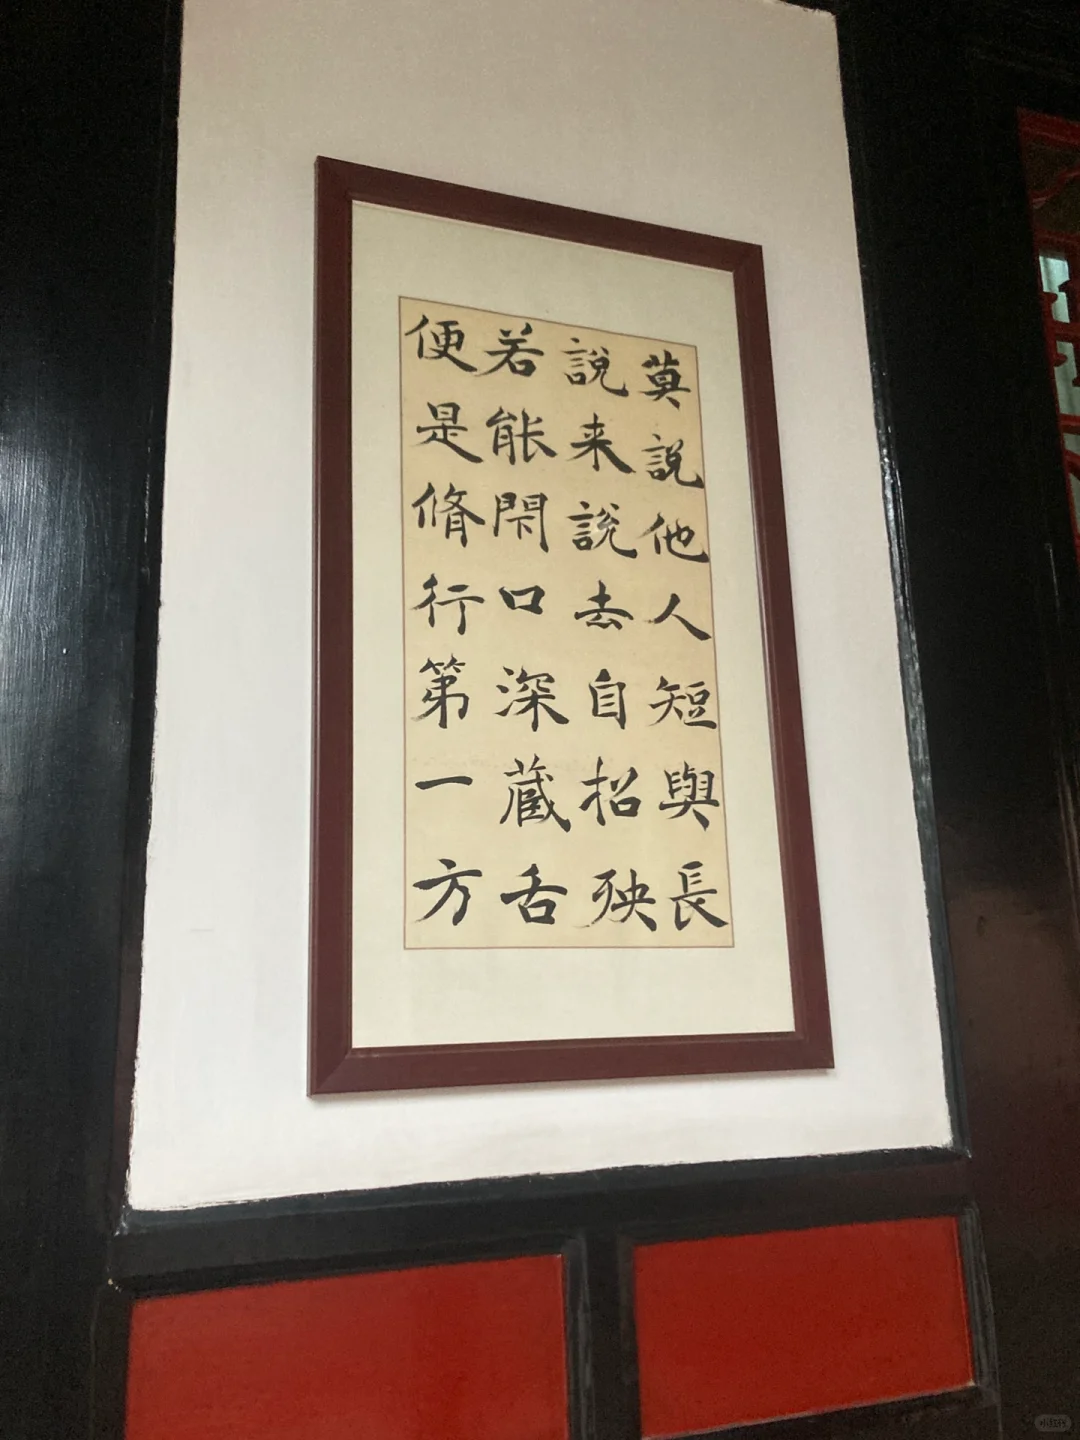 莫說他人短與長
說来說去自招殃
若能閇口深藏舌
便是脩行第一方
小红书